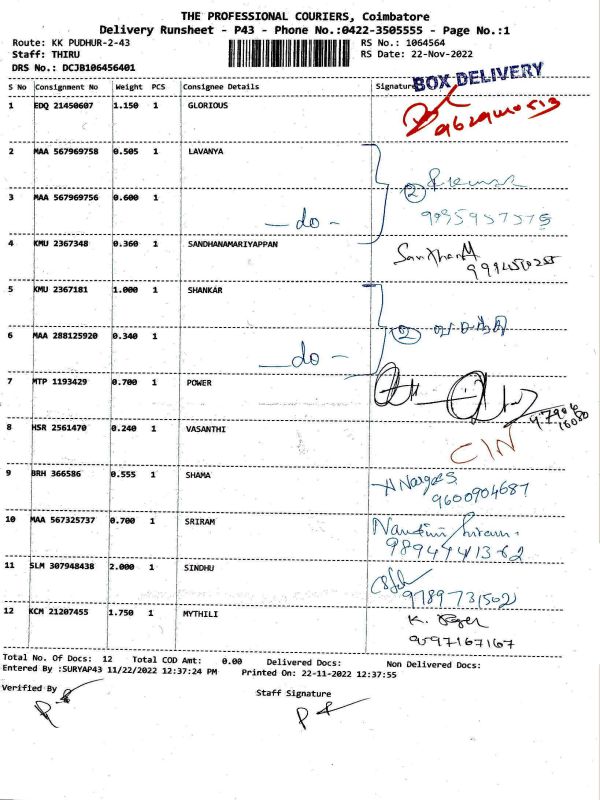 THE PROFESSIONAL COURIERS, Coimbatore
Delivery Runsheet - P43 - Phone No.:0422-3505555 - Page No.:1
Route: KK PUDHUR-2-43 RS No.: 1064564
Staff: THIRU RS Date: 22-Nov-2022
DRS No.: DCJB106456401
BOX DELIVERY
S No Consignment No Weight PCS Consignee Details Signature
1 EDQ 21450607 1.150 1 GLORIOUS
2 MAA 567969758 0.505 1 LAVANYA
3 MAA 567969756 0.600 1 —do— 2
4 KMU 2367348 0.360 1 SANDHANAMARIYAPPAN
5 KMU 2367181 1.000 1 SHANKAR
6 MAA 288125920 0.340 1 —do— 2
7 MTP 1193429 0.700 1 POWER
8 HSR 2561470 0.240 1 VASANTHI CIN
9 BRH 366586 0.555 1 SHAMA
9600904687
10 MAA 567325737 0.700 1 SRIRAM Nandini
11 SLM 307948438 2.000 1 SINDHU
12 KCM 21207455 1.750 1 MYTHILI
9597167167
Total No. Of Docs: 12 Total COD Amt: 0.00 Delivered Docs: Non Delivered Docs:
Entered By :SURYAP43 11/22/2022 12:37:24 PM Printed On: 22-11-2022 12:37:55
Verified By Staff Signature